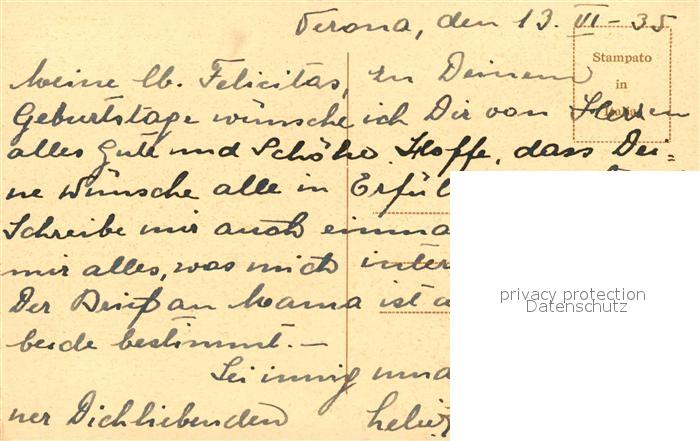 Verona, den 13. VI – 35
Stampato
in
Italia
Meine lb. Felicitas, zu Deinem
Geburtstage wünsche ich Dir von Herzen
alles Gute und Schöne. Hoffe, dass Dei=
ne Wünsche alle in Erfül
Schreibe mir auch einma
mir alles, was mich inter
Der Brief an Mama ist a
beide bestimmt. –
Sei innig umd
ner Dichliebenden
privacy protection
Datenschutz